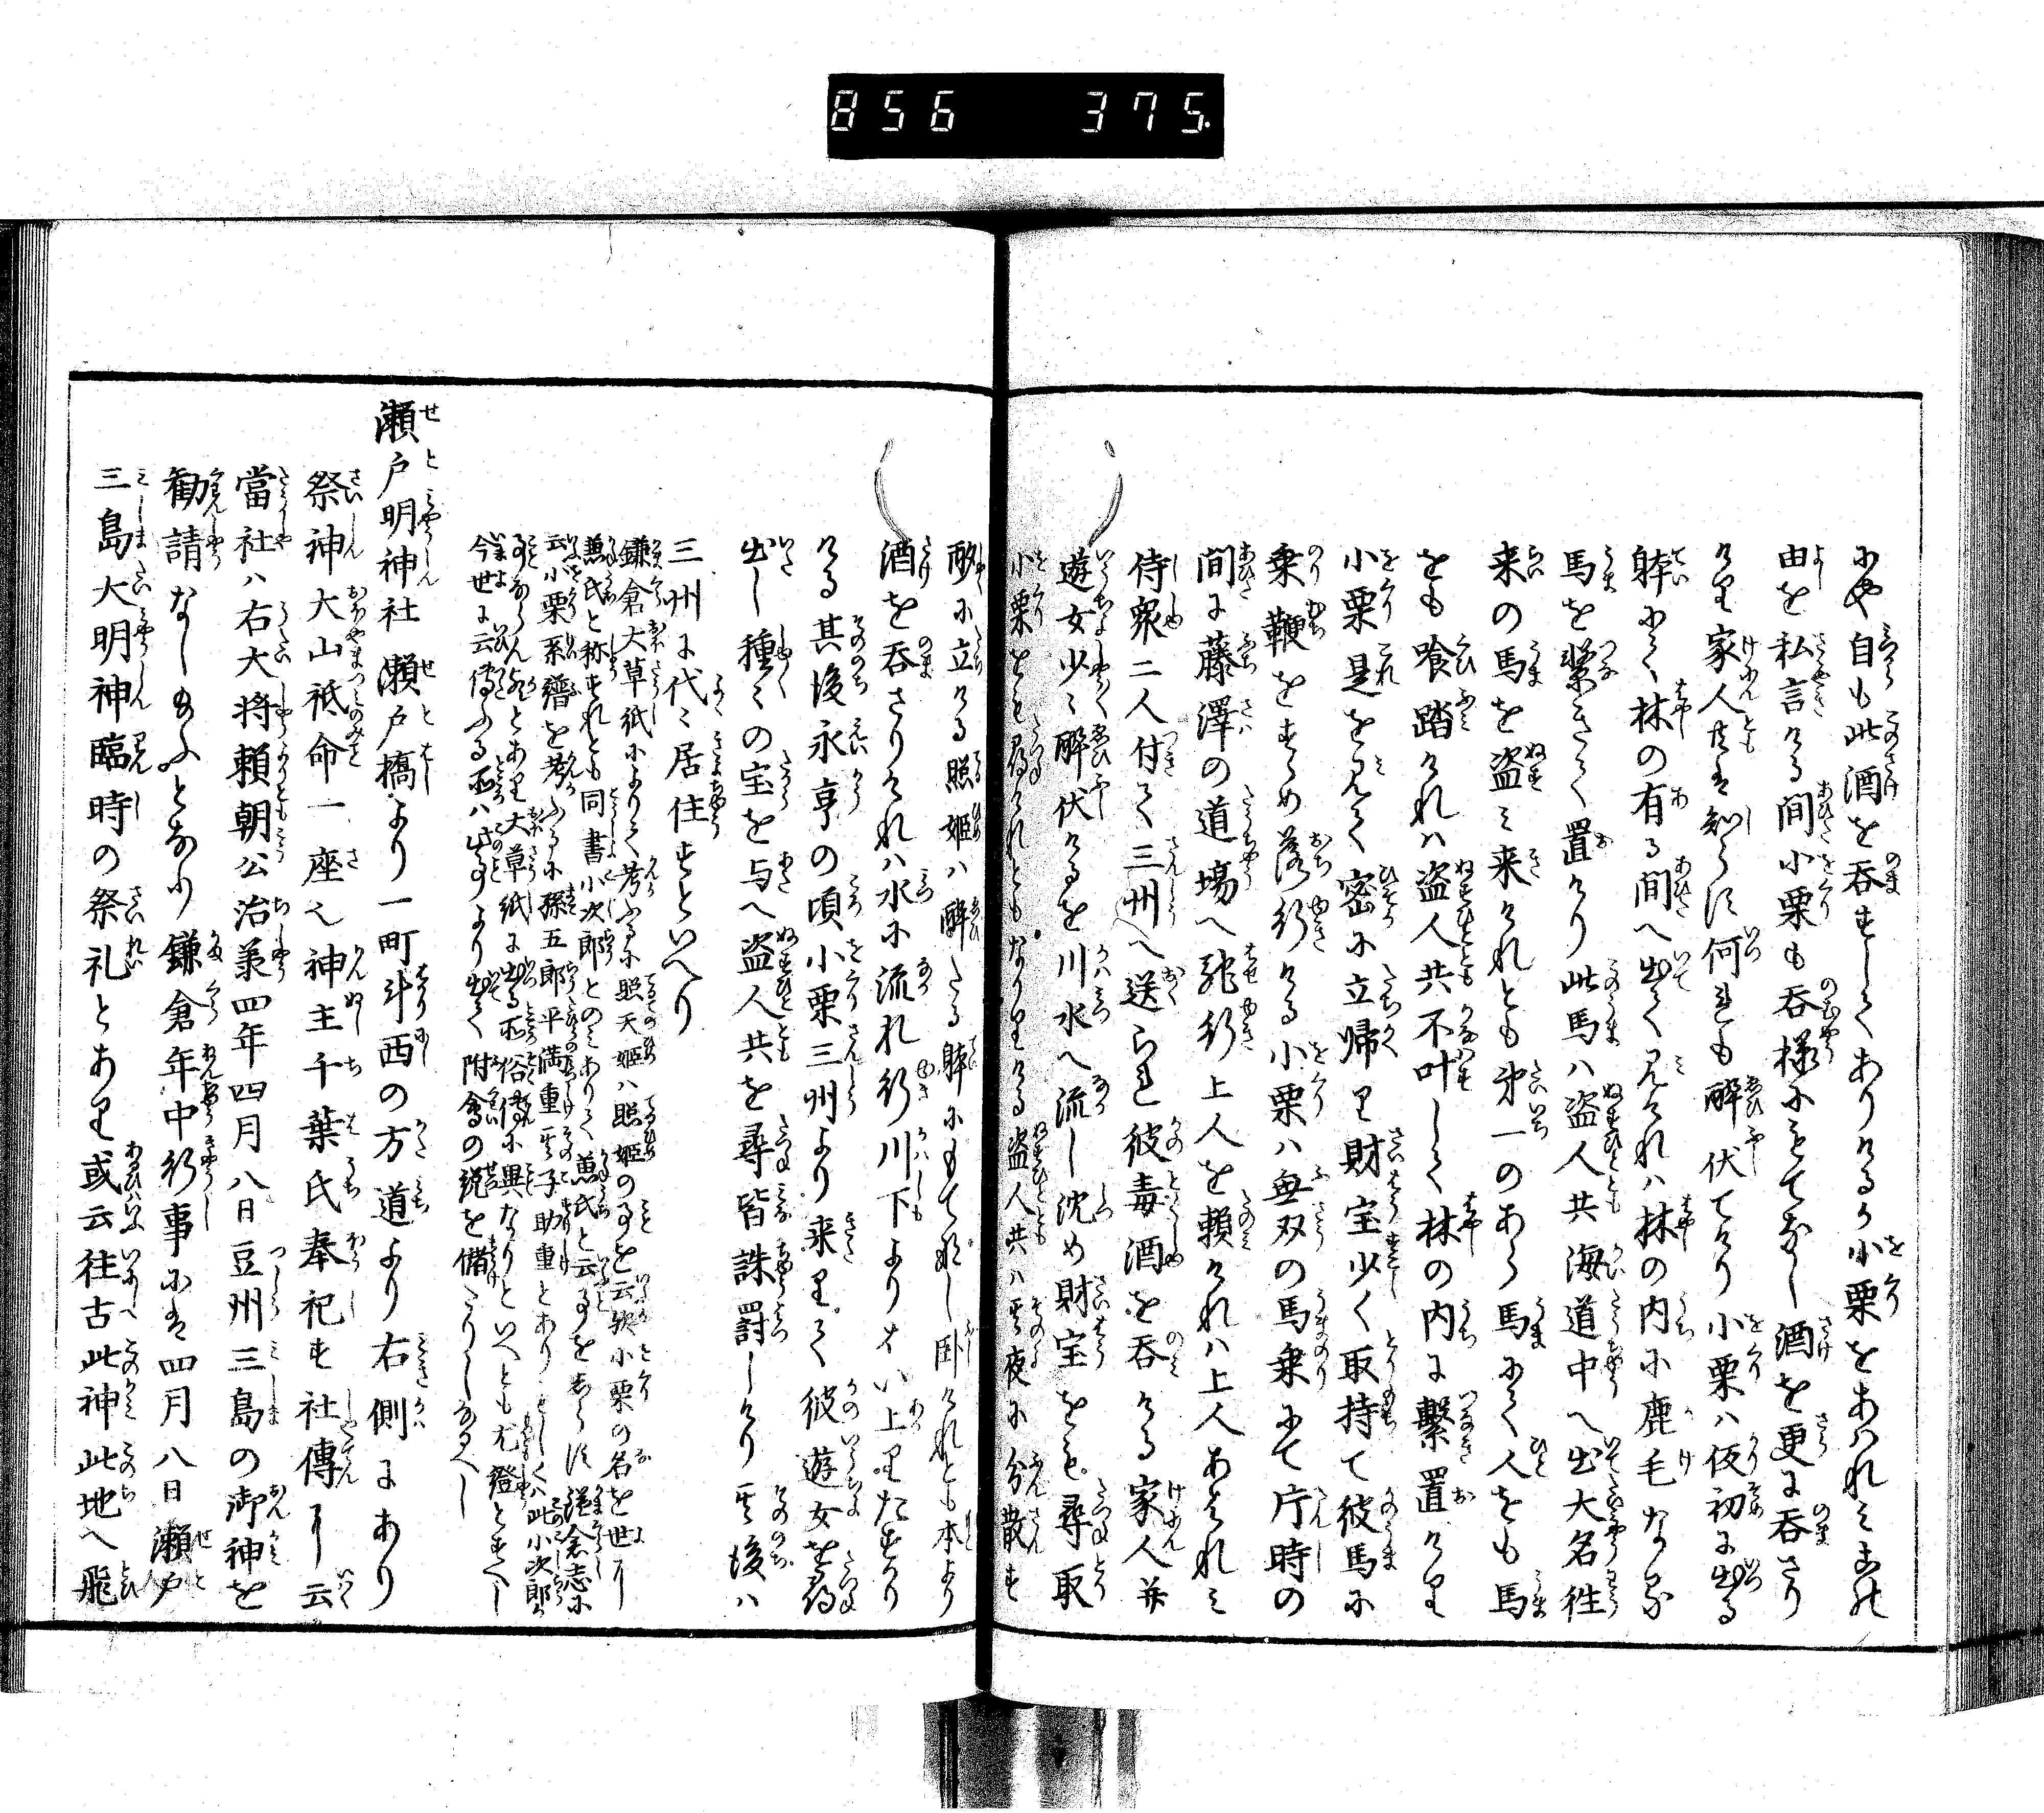 856 375.
にや自も此酒を呑ずしてありけるか小栗をあはれみこの
由を私言ける間小栗も呑様にもてなし酒を更に呑さり
けり家人共は知らす何れも酔伏てけり小栗は仮初に出る
躰にて林の有る間へ出て見けれは林の内に鹿毛なる
馬を繋きて置けり此馬ハ盗人共海道中へ出大名往
来の馬を盗ミ来けれとも第一のあら馬にて人をも馬
をも喰踏けれハ盗人共不叶して林の内に繋置けり
小栗是を見て密に立帰り財宝少く取持て彼馬に
乗鞭をすゝめ落行ける小栗ハ無双の馬乗にて片時の
間に藤澤の道場へ馳行上人を頼けれハ上人あはれミ
侍衆二人付て三州へ送らる彼毒酒を呑ける家人并
遊女少〻酔伏けるを川水へ流し沈め財宝をも尋取
小栗をも尋けれともなかりける盗人共ハ其夜に分散す
酌に立ける照姫ハ酔たる躰にもてなし卧けれとも本より
酒を呑さりけれハ水に流れ行川下よりはい上りたすかり
ける其後永享の頃小栗三州より来りて彼遊女を尋
出し種〻の宝を与へ盗人共を尋皆誅罰しけり其後ハ
三州に代〻居住すといへり
鎌倉大草紙によりて考ふるに照天姫ハ照姫の事を云歟小栗の名を世に
兼氏と称すれとも同書小次郎とのミありて兼氏と云事をしらす鎌倉志に
云小栗系譜を考ふるに孫五郎平満重其子助重とありもしくハ此小次郎か
事ならん歟とあり大草紙に出る所俗傳に異なりといへとも尤證とすへし
今世に云傳ふる所ハ此事より出て附會の説を儲たりしなるへし
瀬戸明神社 瀬戸橋より一町斗西の方道より右側にあり
祭神大山祇命一座也神主千葉氏奉祀す社傳に云
當社ハ右大将頼朝公治承四年四月八日豆州三島の御神を
勧請なし給ふとなり鎌倉年中行事には四月八日瀬戸
三島大明神臨時の祭礼とあり或云往古此神此地へ飛